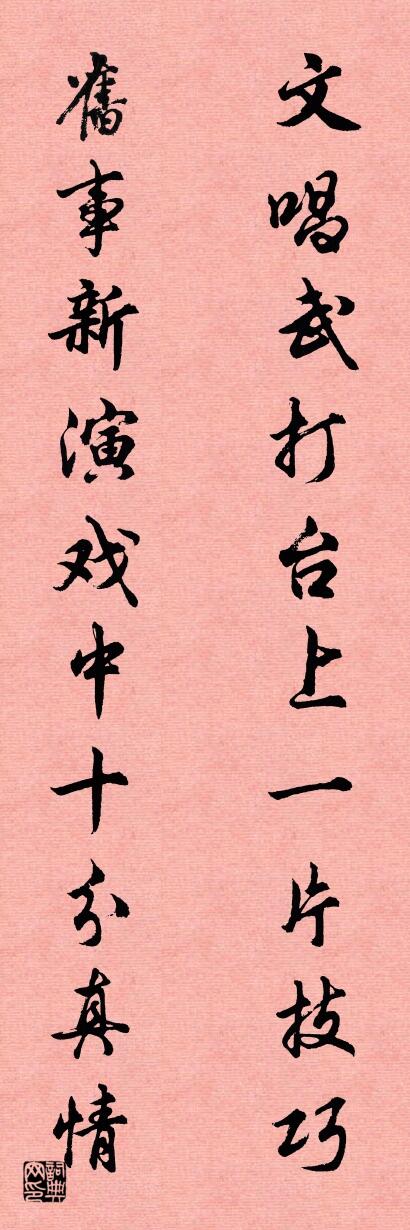 文唱武打台上一片技巧
舊事新演戏中十分真情
詞典网印